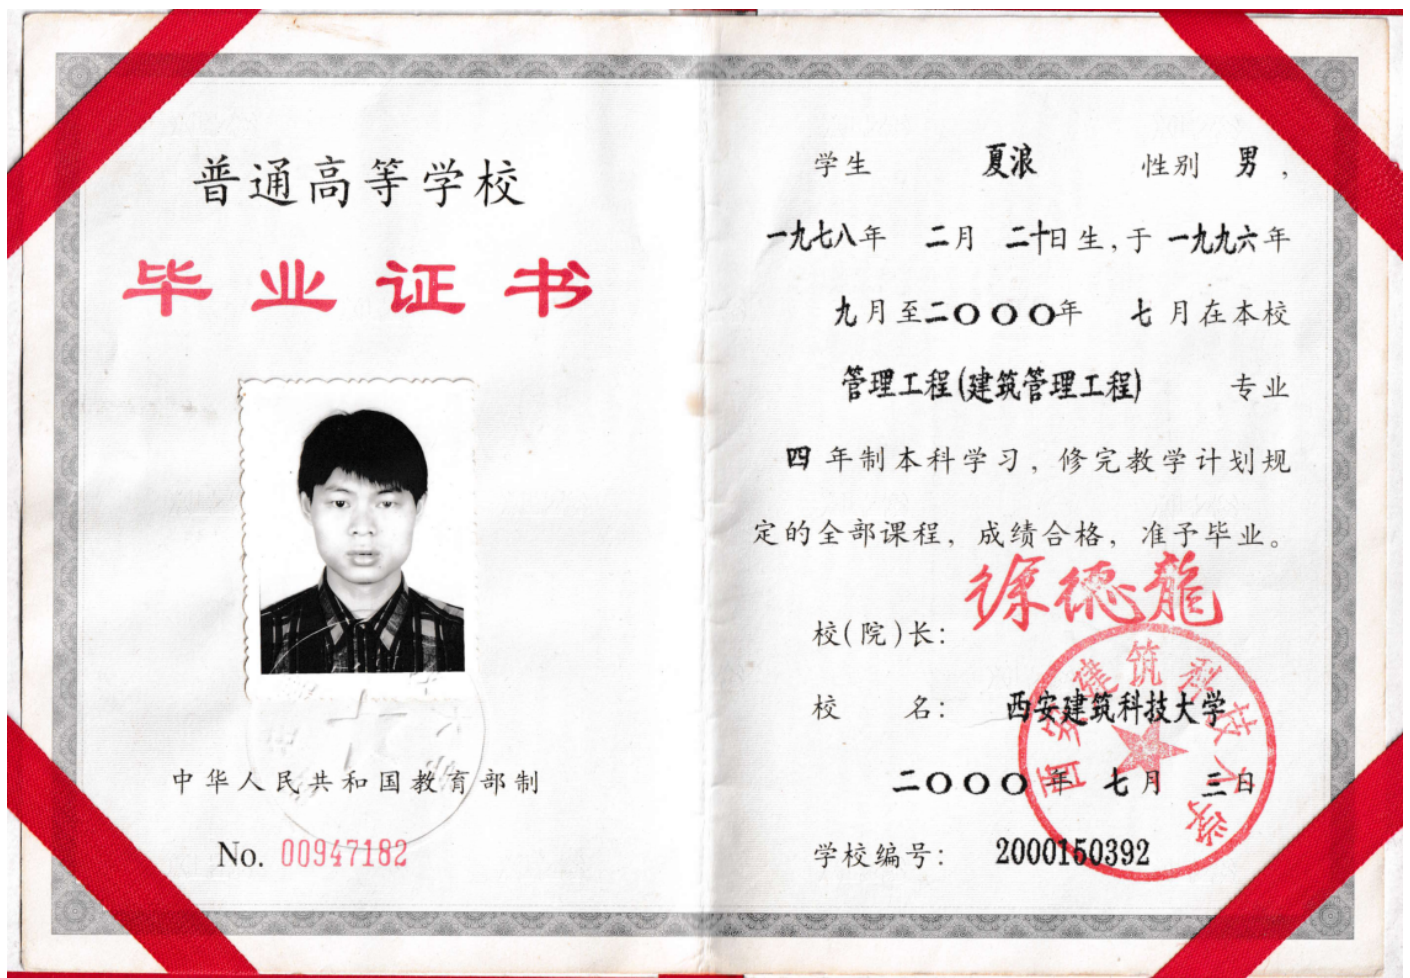 普通高等学校
毕业证书
中华人民共和国教育部制
No. 00947182
学生 夏浪 性别 男,
一九七八年 二月 二十日生,于 一九九六年
九月至二〇〇〇年 七月在本校
管理工程(建筑管理工程) 专业
四年制本科学习, 修完教学计划规
定的全部课程, 成绩合格, 准予毕业。
徐德龍
校(院)长:
校 名: 西安建筑科技大学
二〇〇〇年 七月 三日
学校编号: 2000150392
西安建筑科技大学